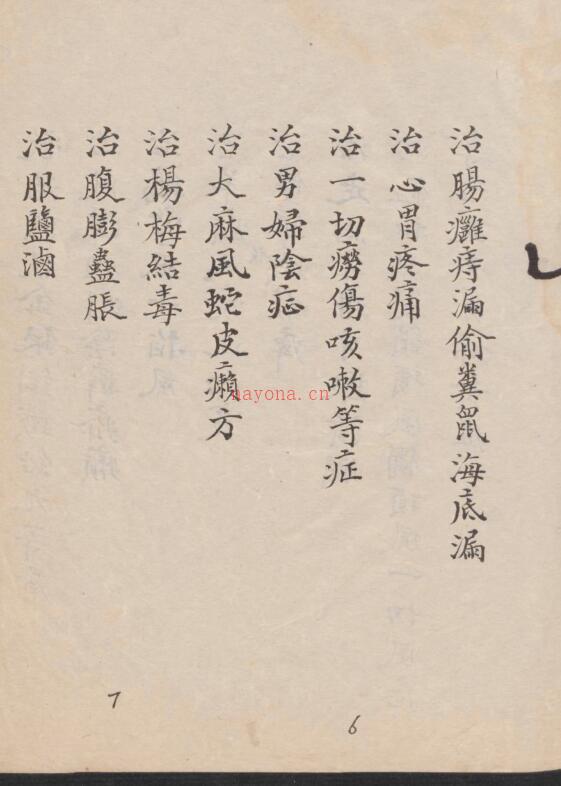 治腸癰痔漏偷糞鼠海底漏
治心胃疼痛
治一切癆傷咳嗽等症
治男婦陰症
治大麻風蛇皮癩方
治楊梅結毒
治腹膨蠱脹
治服鹽滷
nayona.cn
6
7